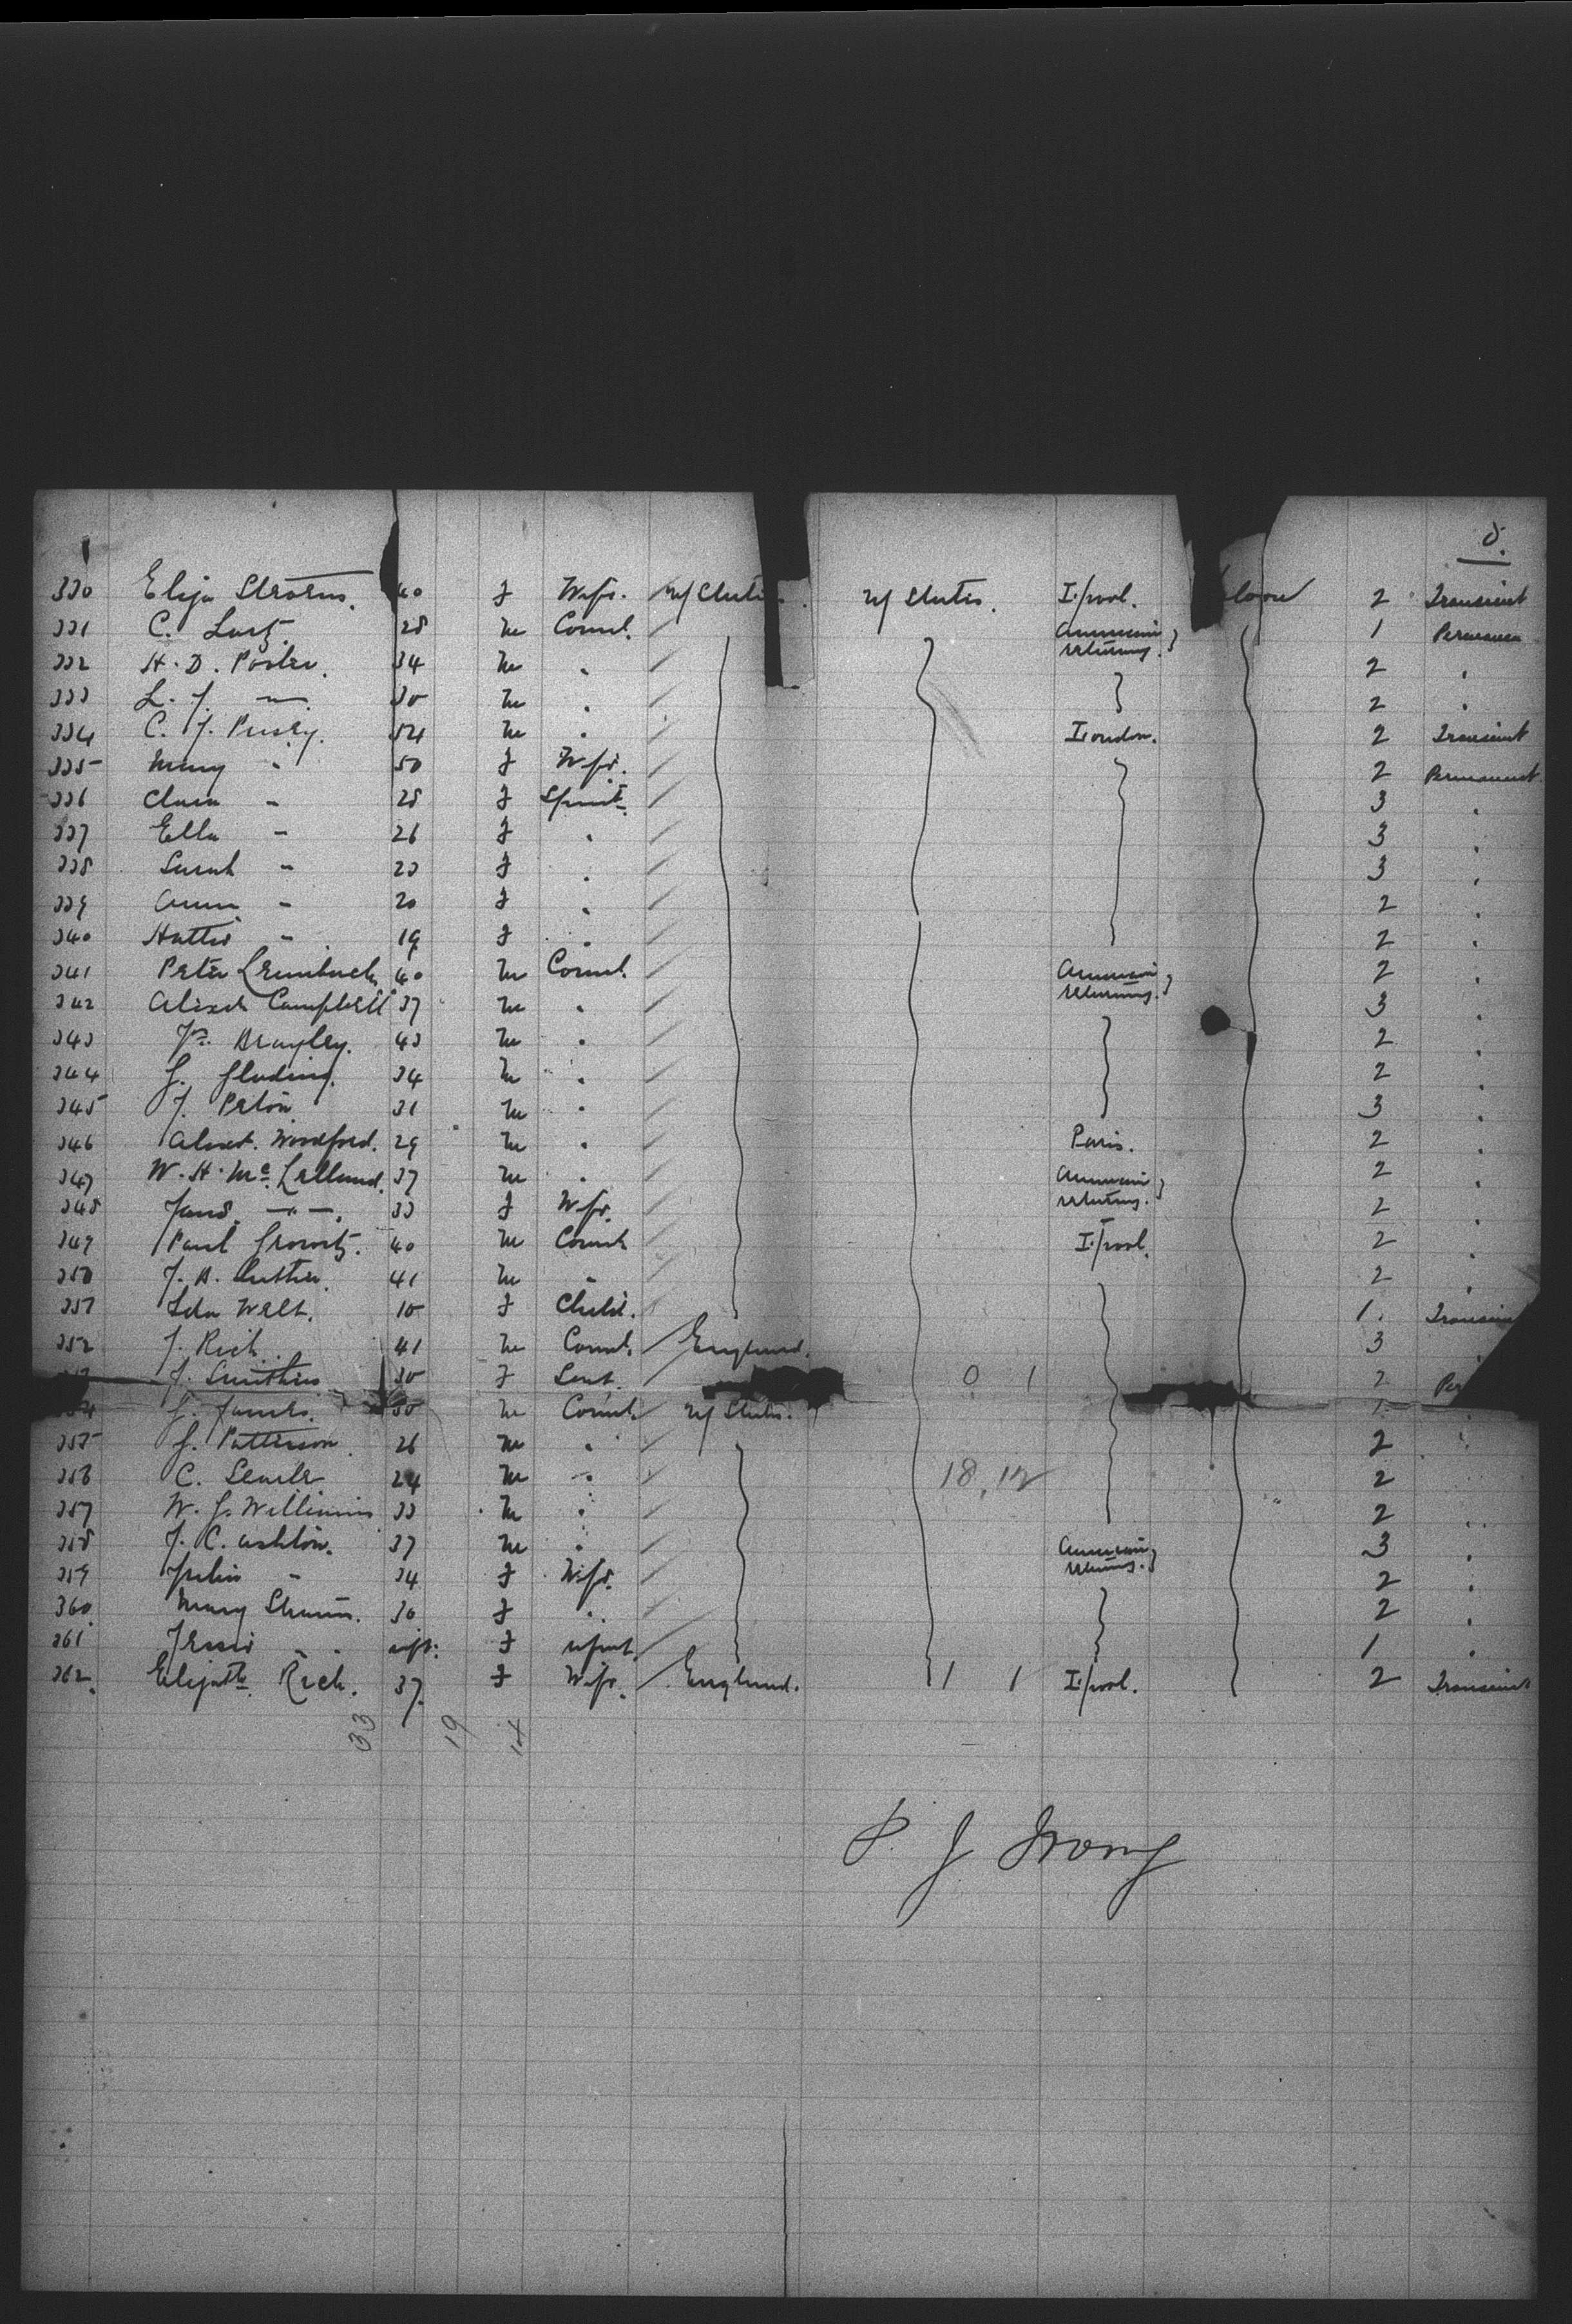 8.
330 Eliza Stearns. 40 F Wife. U/States. U/States. L/pool. Saloon 2 Transient
331 C. 28 M Coml. American returning. 1 Permanen
332 H. D. Porter. 34 M " 2 "
333 L. J. — 30 M " 2 "
334 C. J. Pusey. 54 M " London. 2 Transient
335 Mary " 50 F Wife. 2 Permanent
336 Clara " 28 F Spinst. 3 "
337 Ella " 26 F " 3 "
338 Sarah " 23 F " 3 "
339 Anna " 20 F " 2 "
340 Hattie " 19 F " 2 "
341 Peter 40 M Coml. American returning. 2 "
342 Alexdr Campbell 37 M " 3 "
343 Js. Brayley. 43 M " 2 "
344 G. Glading. 34 M " 2 "
345 J. Peton 31 M " 3 "
346 Alext. Woodford. 29 M " Paris. 2 "
347 W. H. Mc Lelland. 37 M " American returning. 2 "
348 Jane — " — 33 F Wife. 2 "
349 Paul 40 M Coml. L/pool. 2 "
350 J. B. 41 M " 2 "
351 Ida Welt. 10 F Child. 1. Transien
352 J. Rich 41 M Coml. England. 3
J. Smithies 30 F Servt. 0 1 2 Per
G. 30 M Coml. U/States. 2 "
355 G. Patterson 26 M " 2 "
356 C. Searle 24 M " 18.12 2
357 W. G. Williams 33 M " 2 "
358 J. C. Ashton. 37 M " American returning. 3 "
359 Julia " 34 F Wife. 2 "
360 Mary 30 F " 2 "
361 Jessie " inft. F infant 1 "
362. Elizath Rich. 37. F Wife. England. 1 1 L/pool. 2 Transient
33 19 14
P. J. Irving